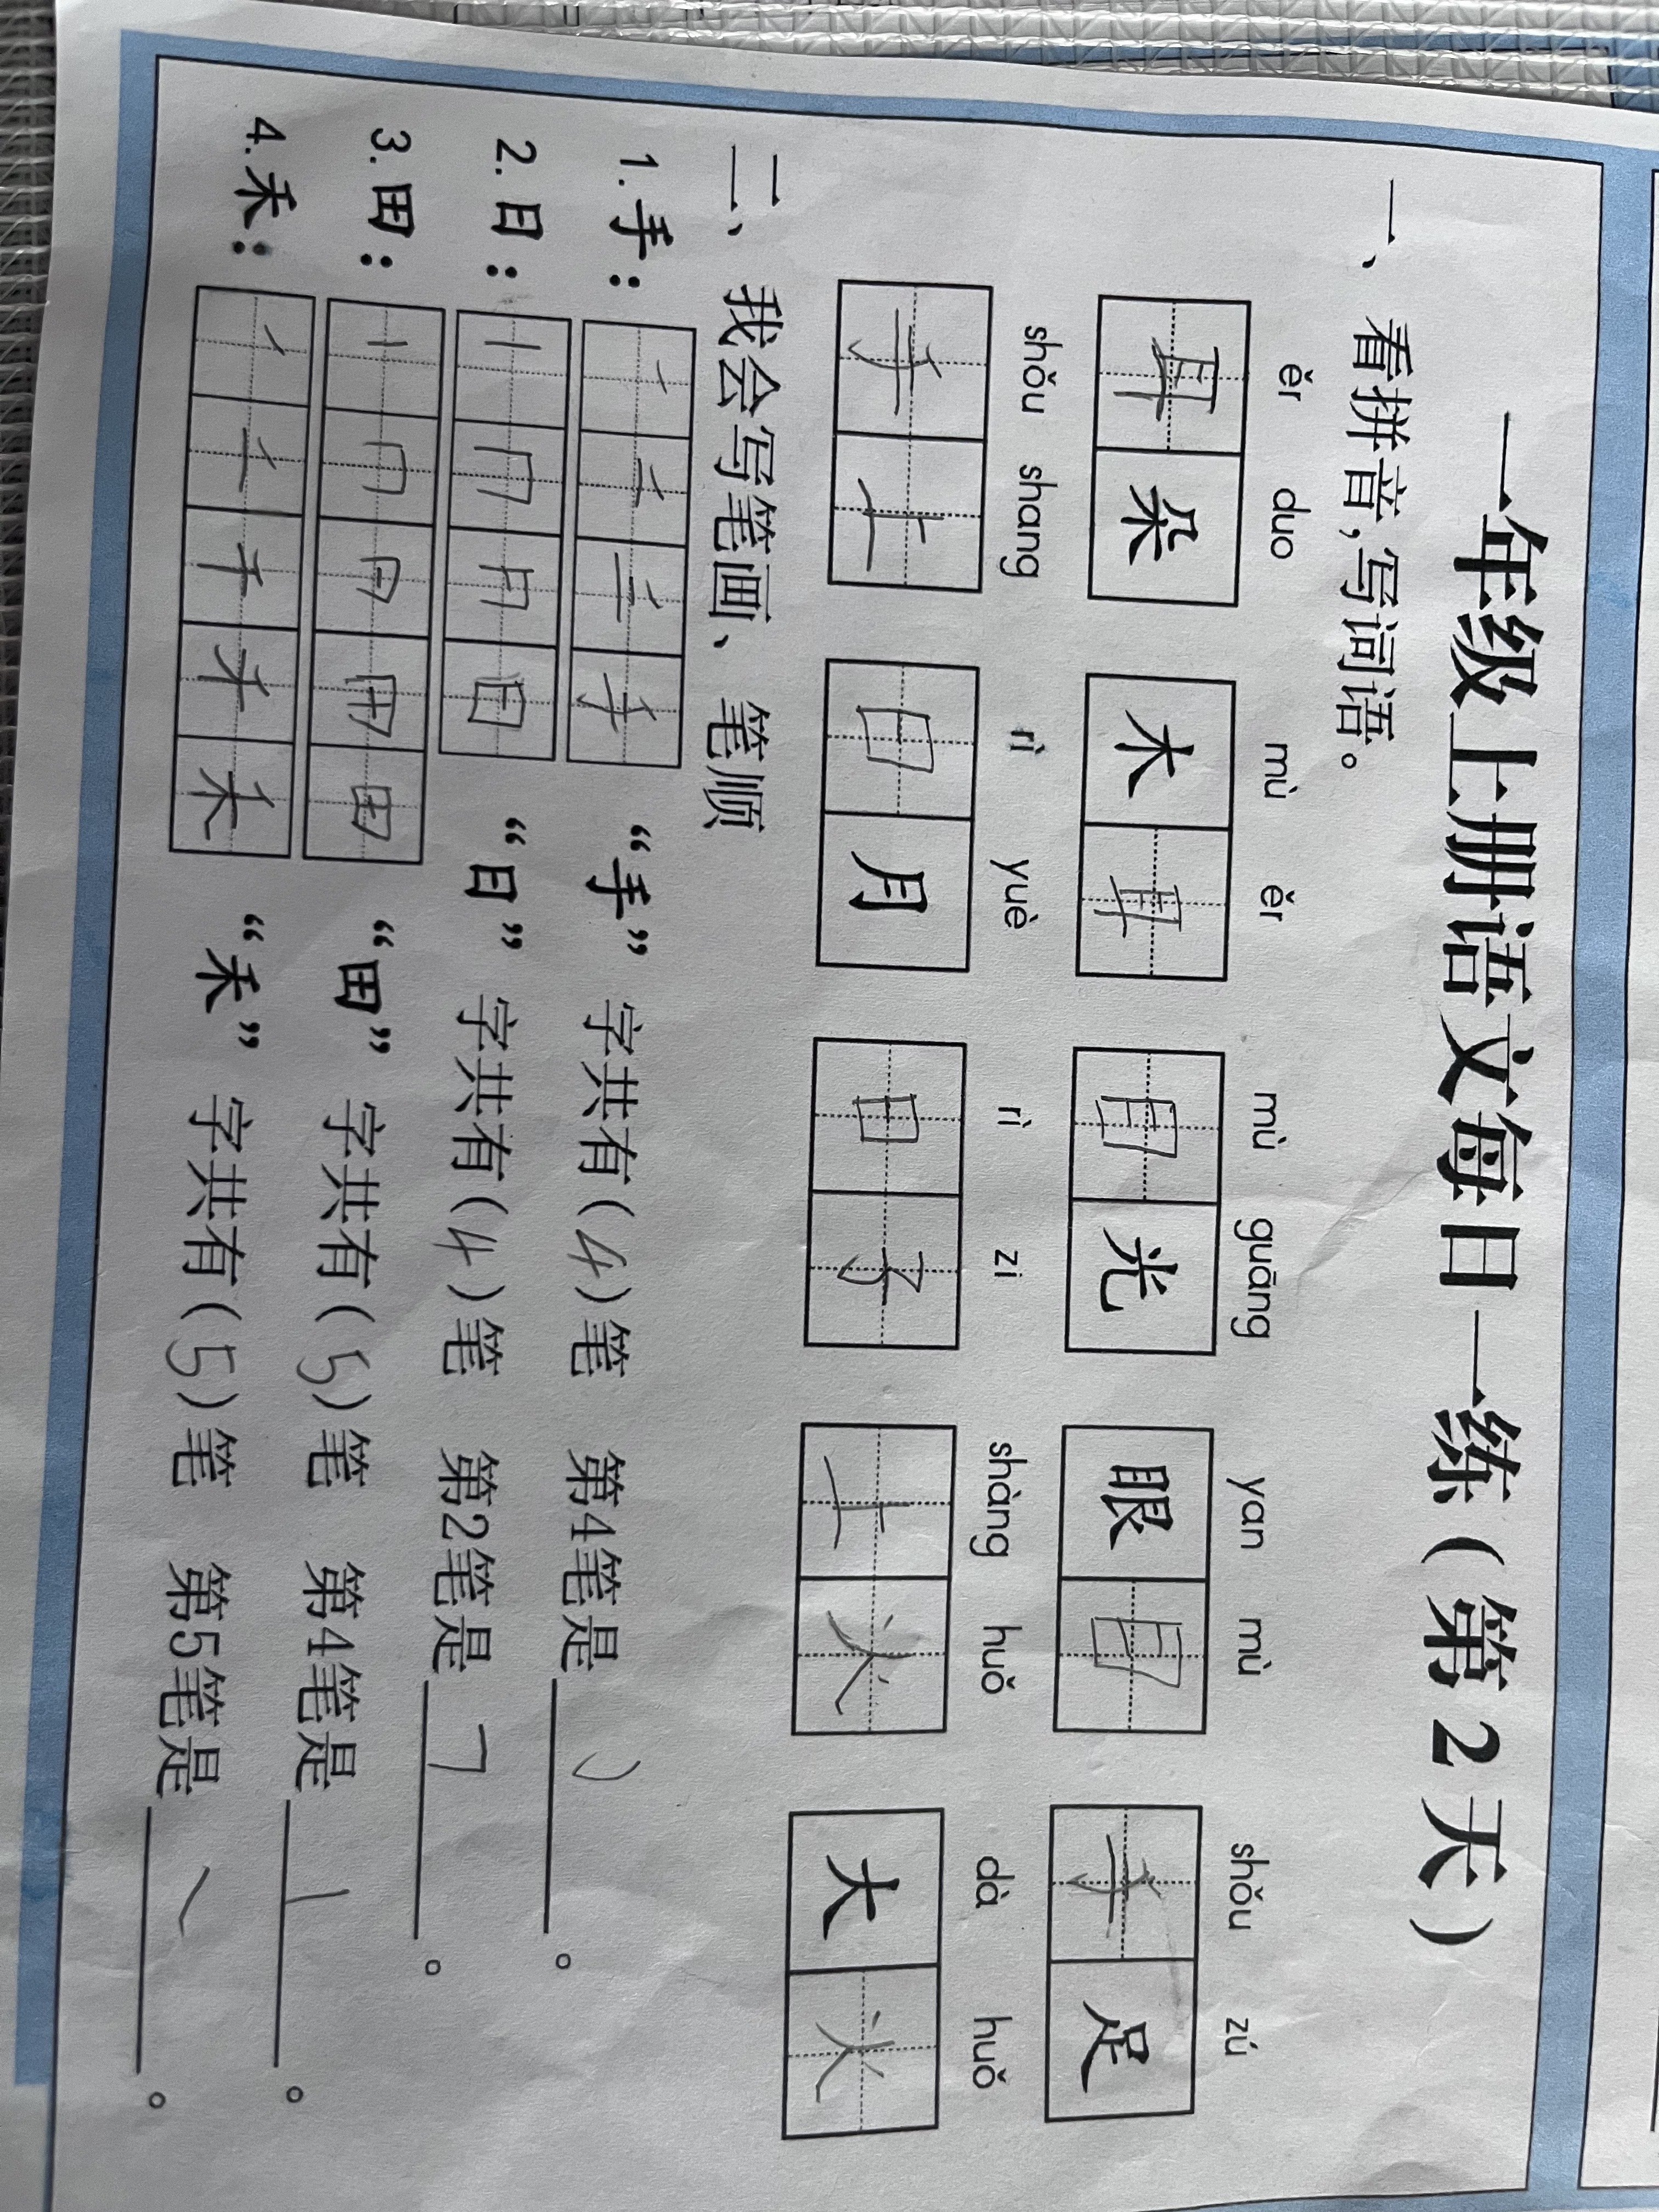 一年级上册语文每日一练（第2天）
一、看拼音，写词语。
ěr duo mù ěr mù guāng yan mù shǒu zú
耳朵 木耳 目光 眼目 手足
shǒu shang rì yuè rì zi shàng huǒ dà huǒ
手上 日月 日子 上火 大火
二、我会写笔画、笔顺
1.手： 手 “手”字共有（4）笔 第4笔是 ㇁。
2.日： 丨 冂 月 日 “日”字共有（4）笔 第2笔是 ㇕。
3.田： 丨 冂 田 “田”字共有（5）笔 第4笔是 丨。
4.禾： 丿 二 千 禾 “禾”字共有（5）笔 第5笔是 ㇏。